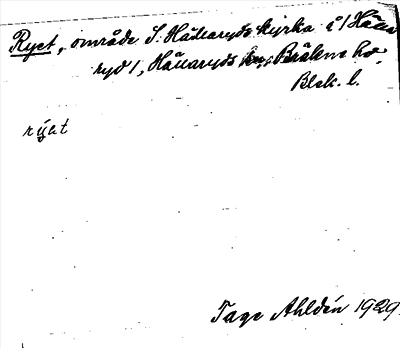 Ryet, område S. Hällaryds kyrka å 1 Hälla
ryd 1, Hällaryds sn, Bräkne hd
Blek. l.
rýat
Tage Ahldén 1929.